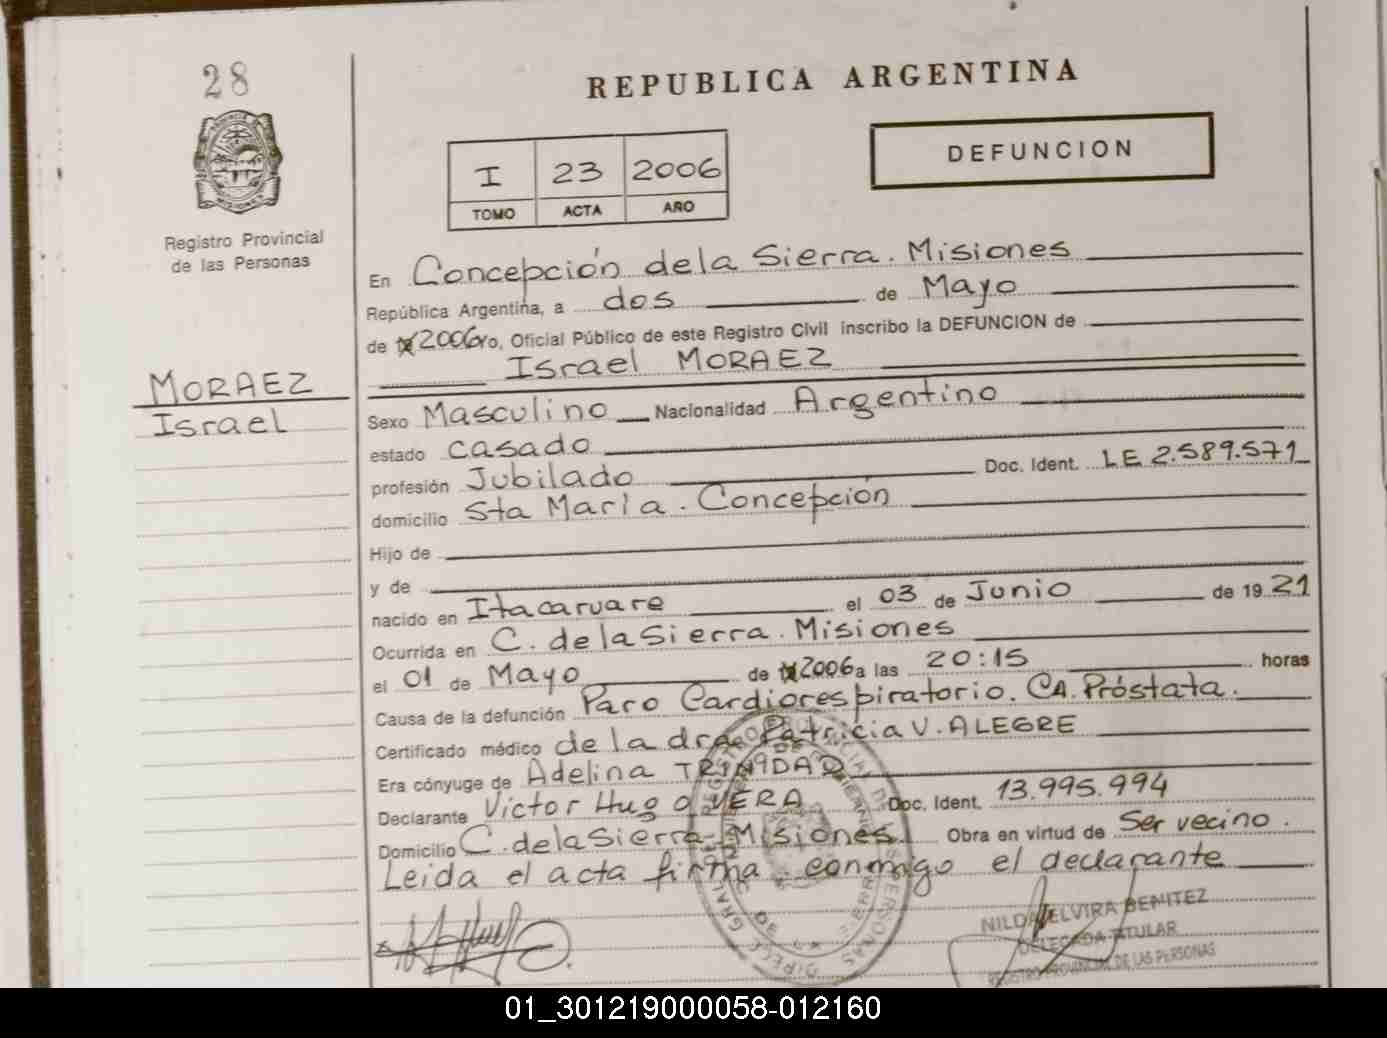 28
REPUBLICA ARGENTINA
I 23 2006
TOMO ACTA AÑO
DEFUNCION
Registro Provincial
de las Personas
MORAEZ
Israel
En Concepción de la Sierra. Misiones
República Argentina, a dos de Mayo
de 2006 yo, Oficial Público de este Registro Civil inscribo la DEFUNCION de
Israel MORAEZ
Sexo Masculino Nacionalidad Argentino
estado casado
profesión Jubilado Doc. Ident. LE 2.589.571
domicilio Sta María. Concepción
Hijo de
y de
nacido en Itacaruare el 03 de Junio de 1921
Ocurrida en C. de la Sierra. Misiones
el 01 de Mayo de 2006 a las 20:15 horas
Causa de la defunción Paro Cardiorespiratorio. CA. Próstata.
Certificado médico de la dra. Patricia V. ALEGRE
Era cónyuge de Adelina TRINIDAD
Declarante Victor Hugo VERA Doc. Ident. 13.995.994
Domicilio C. de la Sierra-Misiones Obra en virtud de Ser vecino.
Leida el acta firma conmigo el declarante
NILDA ELVIRA BENITEZ
DELEGADA TITULAR
REGISTRO PROVINCIAL DE LAS PERSONAS
01_301219000058-012160